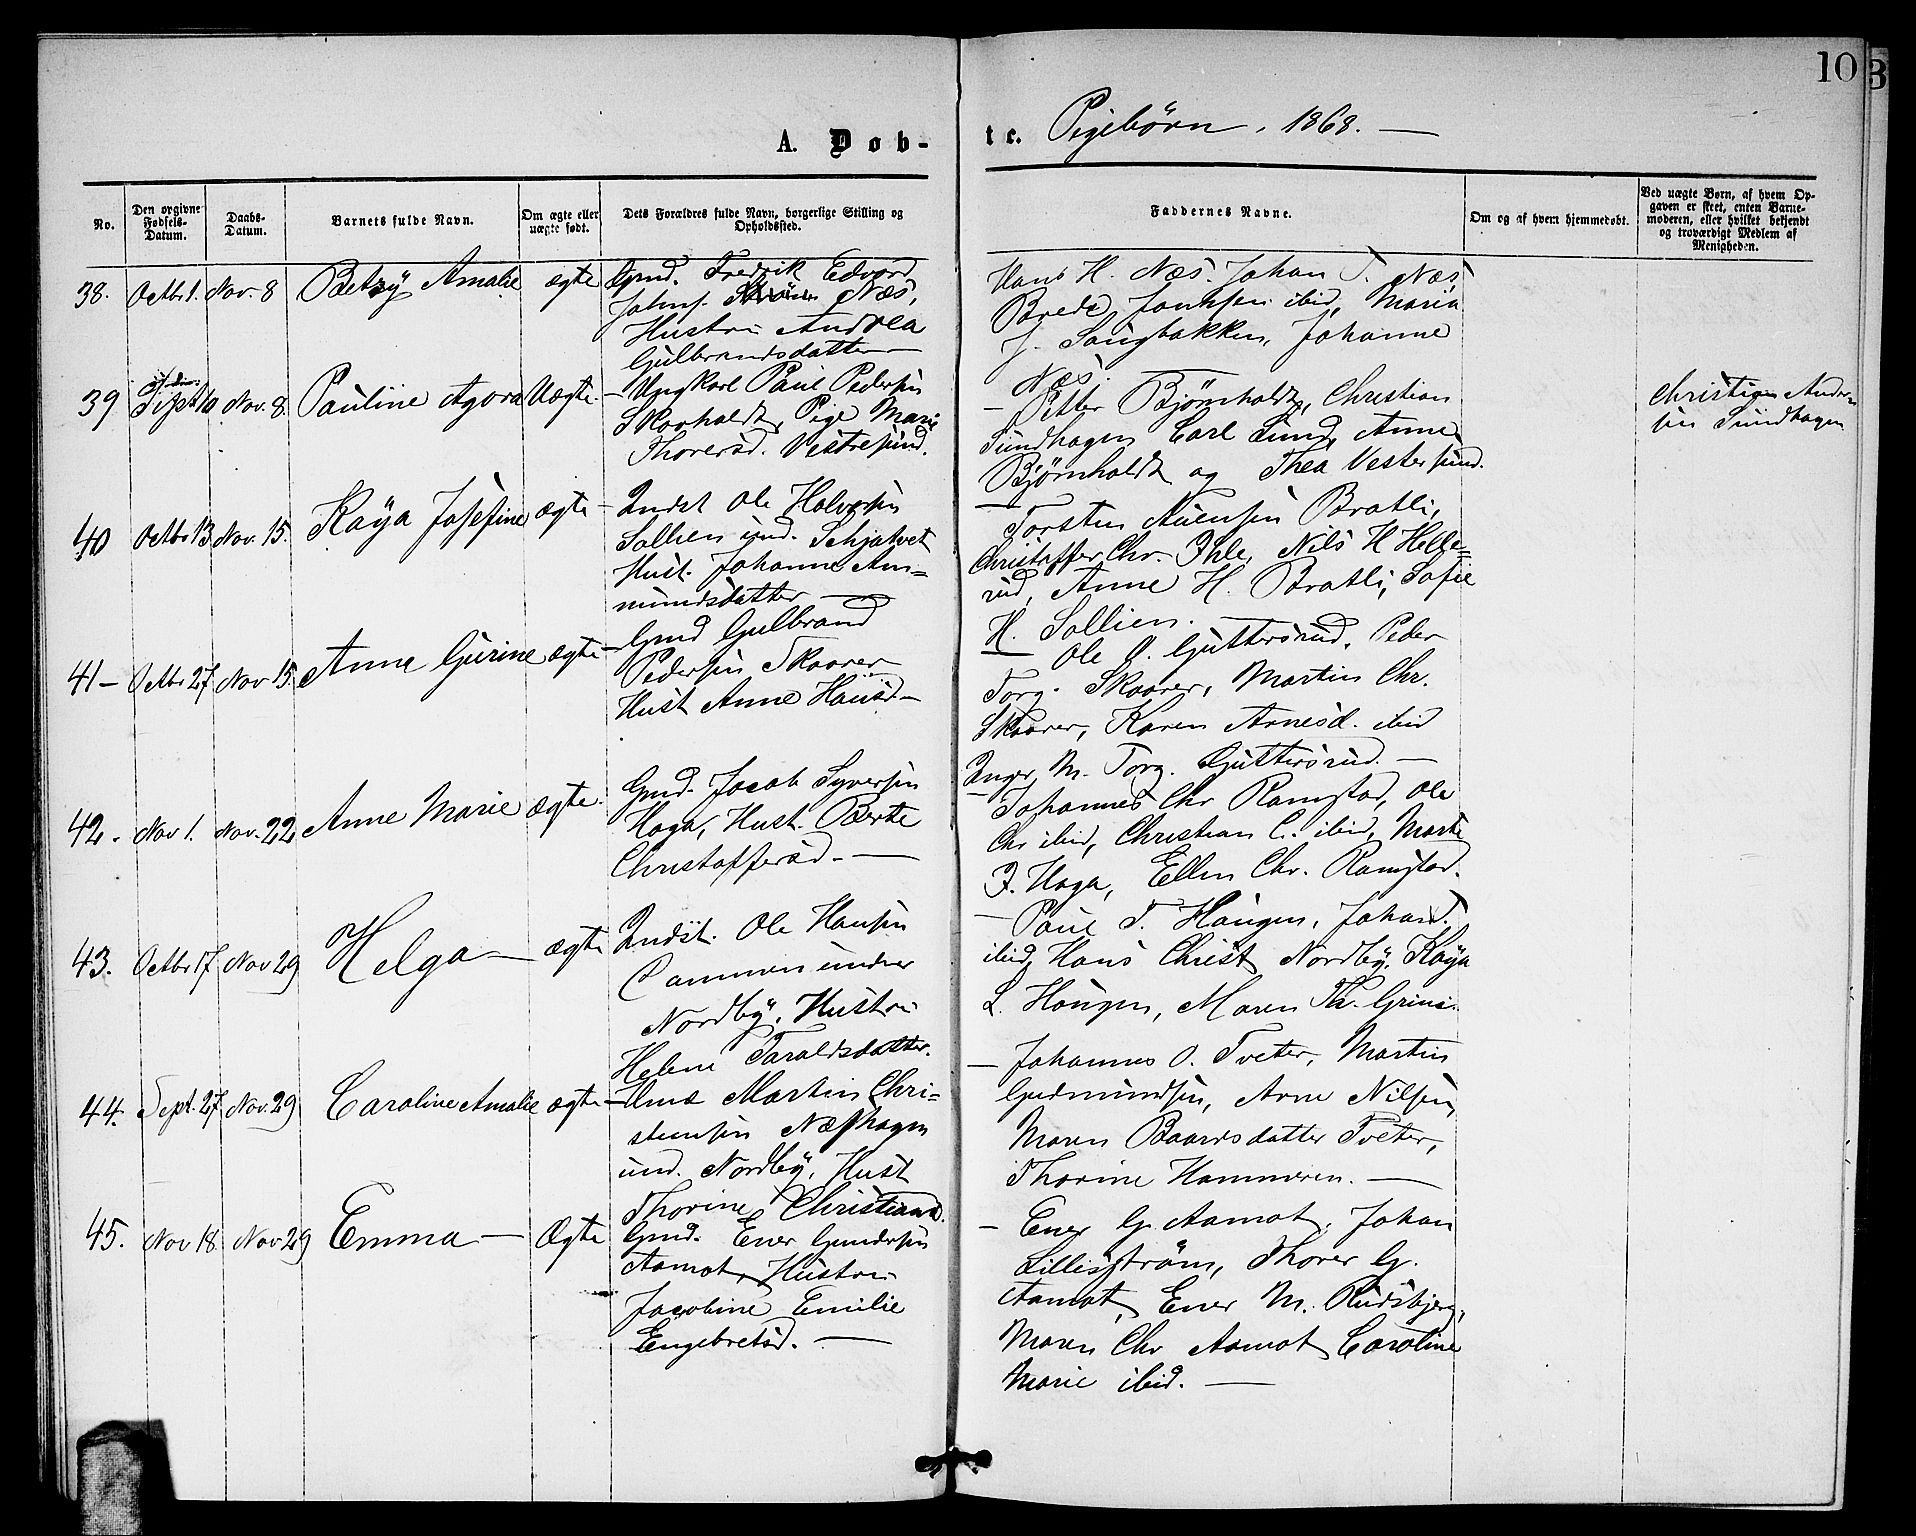 10
3
A. Døb-
te. Pigebørn, 1868. —
No.
Den opgivne Fødsels-Datum.
Daabs-Datum.
Barnets fulde Navn.
Om ægte eller uægte født.
Dets Forældres fulde Navn, borgerlige Stilling og Opholdssted.
Faddernes Navne.
Om og af hvem hjemmedøbt.
Ved uægte Børn, af hvem Opgaven er skeet, enten Barnemoderen, eller hvilket bekjendt og troværdigt Medlem af Menigheden.
38. Octbr 1. Nov. 8 Betzy Amalie ægte
Gmd. Fredrik Edvard
Johnf. Næs,
Hustru Andrea
Gulbrandsdatter —
Hans H. Næs, Johan T. Næs
Brede Jonhsen ibid, Maria
J. Saugbakken, Johanne
Næs.
39 Sept 10 Nov. 8. Pauline Agora Uægte.
— Ungkarl Paul Pedersen
Skovholdt, Pige Marie
Thoresd. Vestresund.
— Petter Bjørnholdt, Christian
Sundhagen Carl Sund, Anne
Bjørnholdt og Thea Vestersund.
Christian Ander-
sen Sundhagen
40 Octbr 13 Nov. 15. Kaya Josefine ægte
— Indst Ole Halvorsen
Sollien und. Schjatvet
Hust. Johanne Am-
mundsdatter —
— Torsten Auensen Bratli,
Christoffer Chr. Ihle, Nils H Helle=
rud, Anne H. Bratli, Sofie
H. Sollien.
41 — Octbr 27 Nov 15. Anne Gurine ægte
— Gmd Gulbrand
Pedersen Skaarer
Hust Anne Hansd —
— Ole O. Guttersrud, Peder
Torg. Skaarer, Martin Chr.
Skaarer, Karen Arnesd. ibid
Inger M. Torg. Guttersrud. —
42. Nov 1. Nov. 22 Anne Marie ægte.
Gmd. Jacob Syversen
Haga, Hust. Berte
Christoffersd. —
— Johannes Chr Ramstad, Ole
Chr ibid, Christian C. ibid, Marte
J. Haga, Ellen Chr. Ramstad.
43. Octbr 17 Nov 29 Helga — ægte
Indst. Ole Hansen
Dammen under
Nordby, Hustru
Helene Taraldsdatter.
— Paul T. Haugen, Johan T.
ibid, Hans Christ Nordby, Kaya
L. Haugen, Maren Th. Grini.
44. Sept. 27 Nov. 29 Caroline Amalie ægte
— Hmd Martin Chri-
stensen Næshagen
und. Nordby, Hust
Thorine Christiansd.
— Johannes O. Tveter, Martin
Gudmundsen, Arne Nilsen,
Maren Baardsdatter Tveter,
Thorine Hammeren. —
45. Nov 18. Nov 29 Emma — Ægte
Gmd. Ener Gundersen
Aamot, Hustru
Jacobine Emilie
Engebretsd. —
— Ener G. Aamot, Johan
Lillestrøm, Thorer G.
Aamot, Ener M. Rudsbjerg,
Maren Chr Aamot Caroline
Marie ibid. —